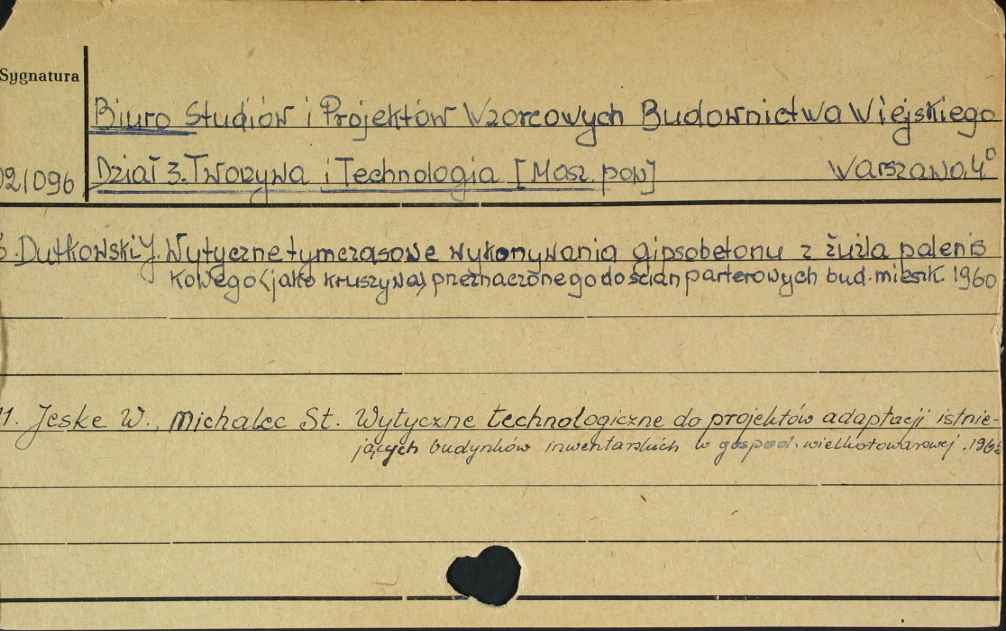 Sygnatura
Biuro Studiów i Projektów Wzorcowych Budownictwa Wiejskiego
Dział 3. Tworzywa i Technologia [Masz pow] Warszawa, 4°
021096
6. Dutkowski J. Wytyczne tymczasowe wykonywania gipsobetonu z żużla palenis
kowego (jako kruszywa) przeznaczonego do ścian parterowych bud. mieszk. 1960
11. Jeske W., Michalec St. Wytyczne technologiczne do projektów adaptacji istnie-
jących budynków inwentarskich w gospod. wielkotowarowej.